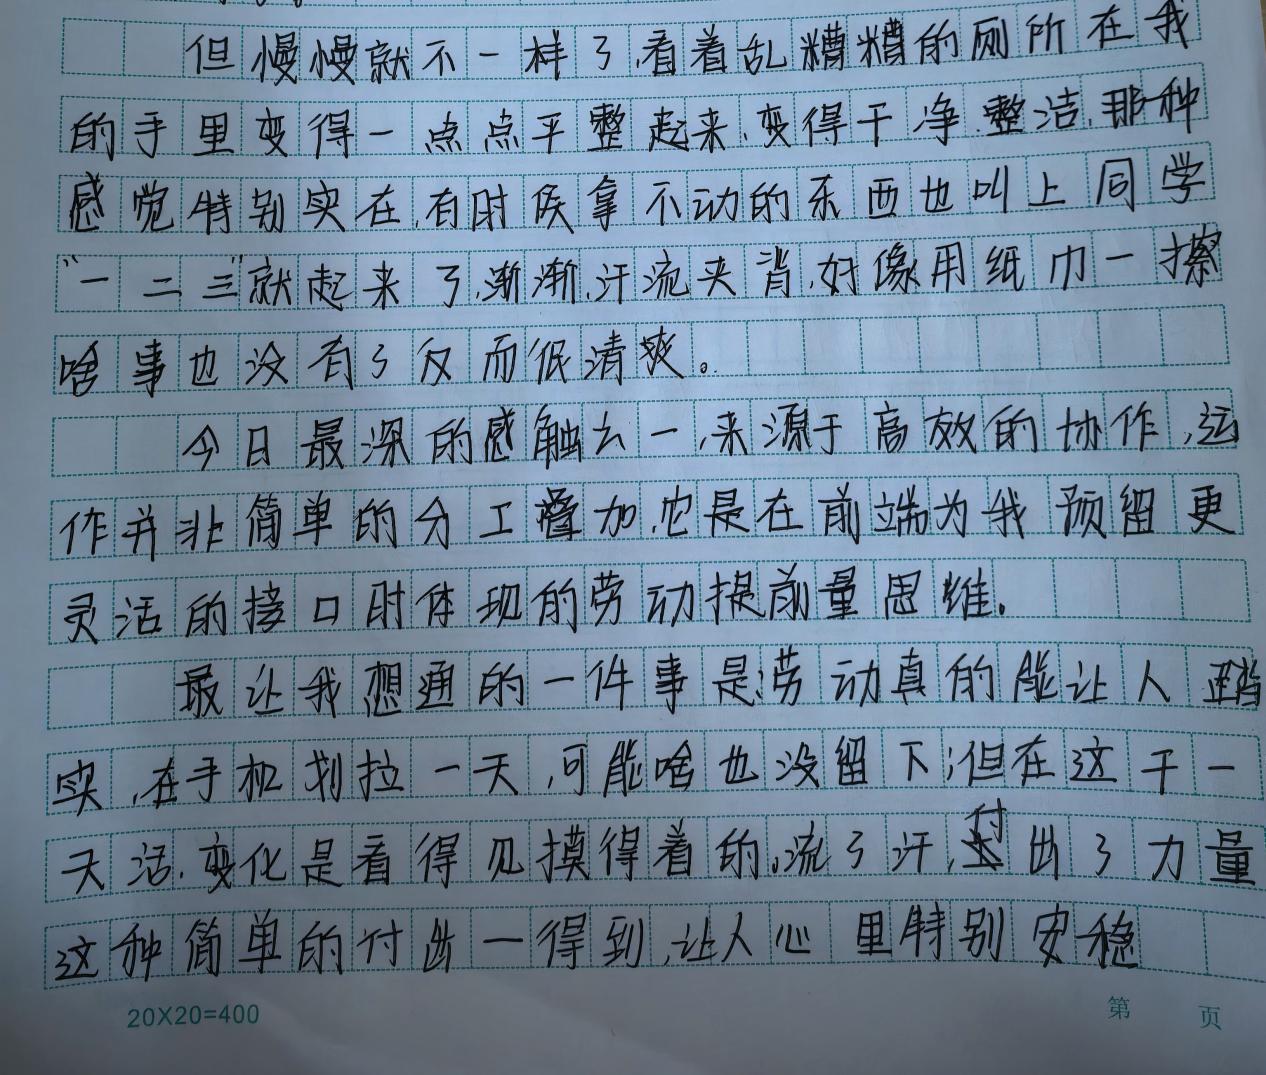 但慢慢就不一样了,看着乱糟糟的厕所在我
的手里变得一点点平整起来,变得干净整洁,那种
感觉特别实在,有时候拿不动的东西也叫上同学
“一二三”就起来了,渐渐,汗流夹背,好像用纸巾一擦
啥事也没有了反而很清爽。
今日最深的感触之一,来源于高效的协作,运
作并非简单的分工叠加,它是在前端为我预留更
灵活的接口时体现的劳动提前量思维.
最让我想通的一件事是:劳动真的能让人踏
实,在手机划拉一天,可能啥也没留下;但在这干一
天活,变化是看得见摸得着的,流了汗,付出了力量
这种简单的付出—得到,让人心里特别安稳
20X20=400
第 页